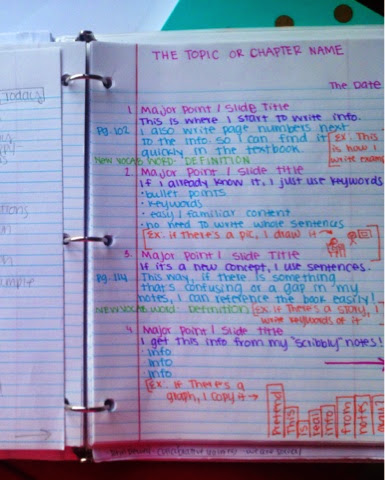 Today
THE TOPIC OR CHAPTER NAME
The Date
1. Major Point / Slide Title
This is where I start to write info.
Pg. 102 I also write page numbers next
to the info, so I can find it
quickly in the textbook.
[Ex. This
is how I
write exam
NEW VOCAB WORD · DEFINITION
2. Major Point / Slide Title
If I already know it, I just use keywords
· bullet points
· keywords
· easy / familiar content
· no need to write whole sentences
[Ex. if there's a pic, I draw it →
3. Major Point / Slide Title
If it's a new concept, I use sentences.
Pg. 114 This way, if there is something
that's confusing or a gap in my
notes, I can reference the book easily!
NEW VOCAB WORD · Definition [Ex: If There's a story, I
write keywords of it
4. Major Point / slide title
I get this info from my "scribbly" notes!
· info
· info
· info
[Ex. If There's a
graph, I copy it →
Pretend
This
is
real
info
from
notes